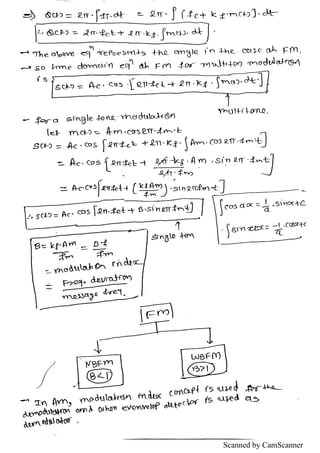 ⇒ θ(t) = 2π·∫fi·dt = 2π·∫[fc + kf·m(t)]·dt
∴ θ(t) = 2π·fct + 2π·kf·∫m(t)·dt.
→ The above eqn represents the angle in the case of FM.
→ so time domain eqn of FM for multiton modulation
is
S(t) = Ac·cos[2πfct + 2π·kf·∫m(t)·dt.]
↑
multitone.
- for a single tone modulation
let m(t) = Am·cos2π·fm·t
S(t) = Ac·cos[2π·fct + 2π·kf·∫Am·cos2π·fmt]
= Ac·cos[2πfct + 2π·kf·Am·sin2π·fmt]
2π·fm
= Ac·cos[2πfct + (kfAm)·sin2πfmt]
fm
∴ S(t) = Ac·cos[2π·fct + β·sin2π·fmt]
↑
single ton
∫cos ax = 1/a·sinax+C
∫sinax = -1/a·cosax+C
β = kf·Am = Δf
fm fm
= modulation index
= Freq. deviation
message freq.
FM
NBFM
(β<1)
WBFM
(β>1)
→ In Am, modulation index concept is used for the
demodulation and when evenvelop detector is used as
demodulator.
Scanned by CamScanner